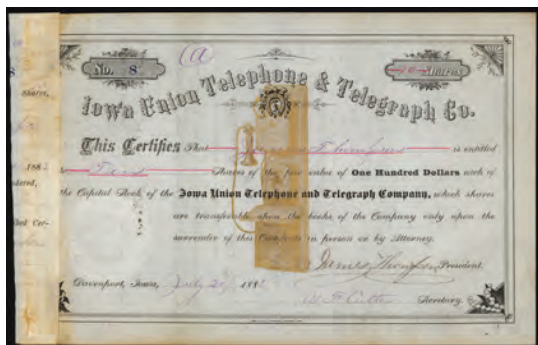 (a
No. 8
Shares
Iowa Union Telephone & Telegraph Co.
Shares,
This Certifies That James Thompson is entitled
188
Shares of the par value of One Hundred Dollars each of
the Capital Stock of the Iowa Union Telephone and Telegraph Company, which shares
are transferable upon the books of the Company only upon the
surrender of this Certificate in person or by Attorney.
James Thompson President.
Davenport, Iowa, July 188
Secretary.